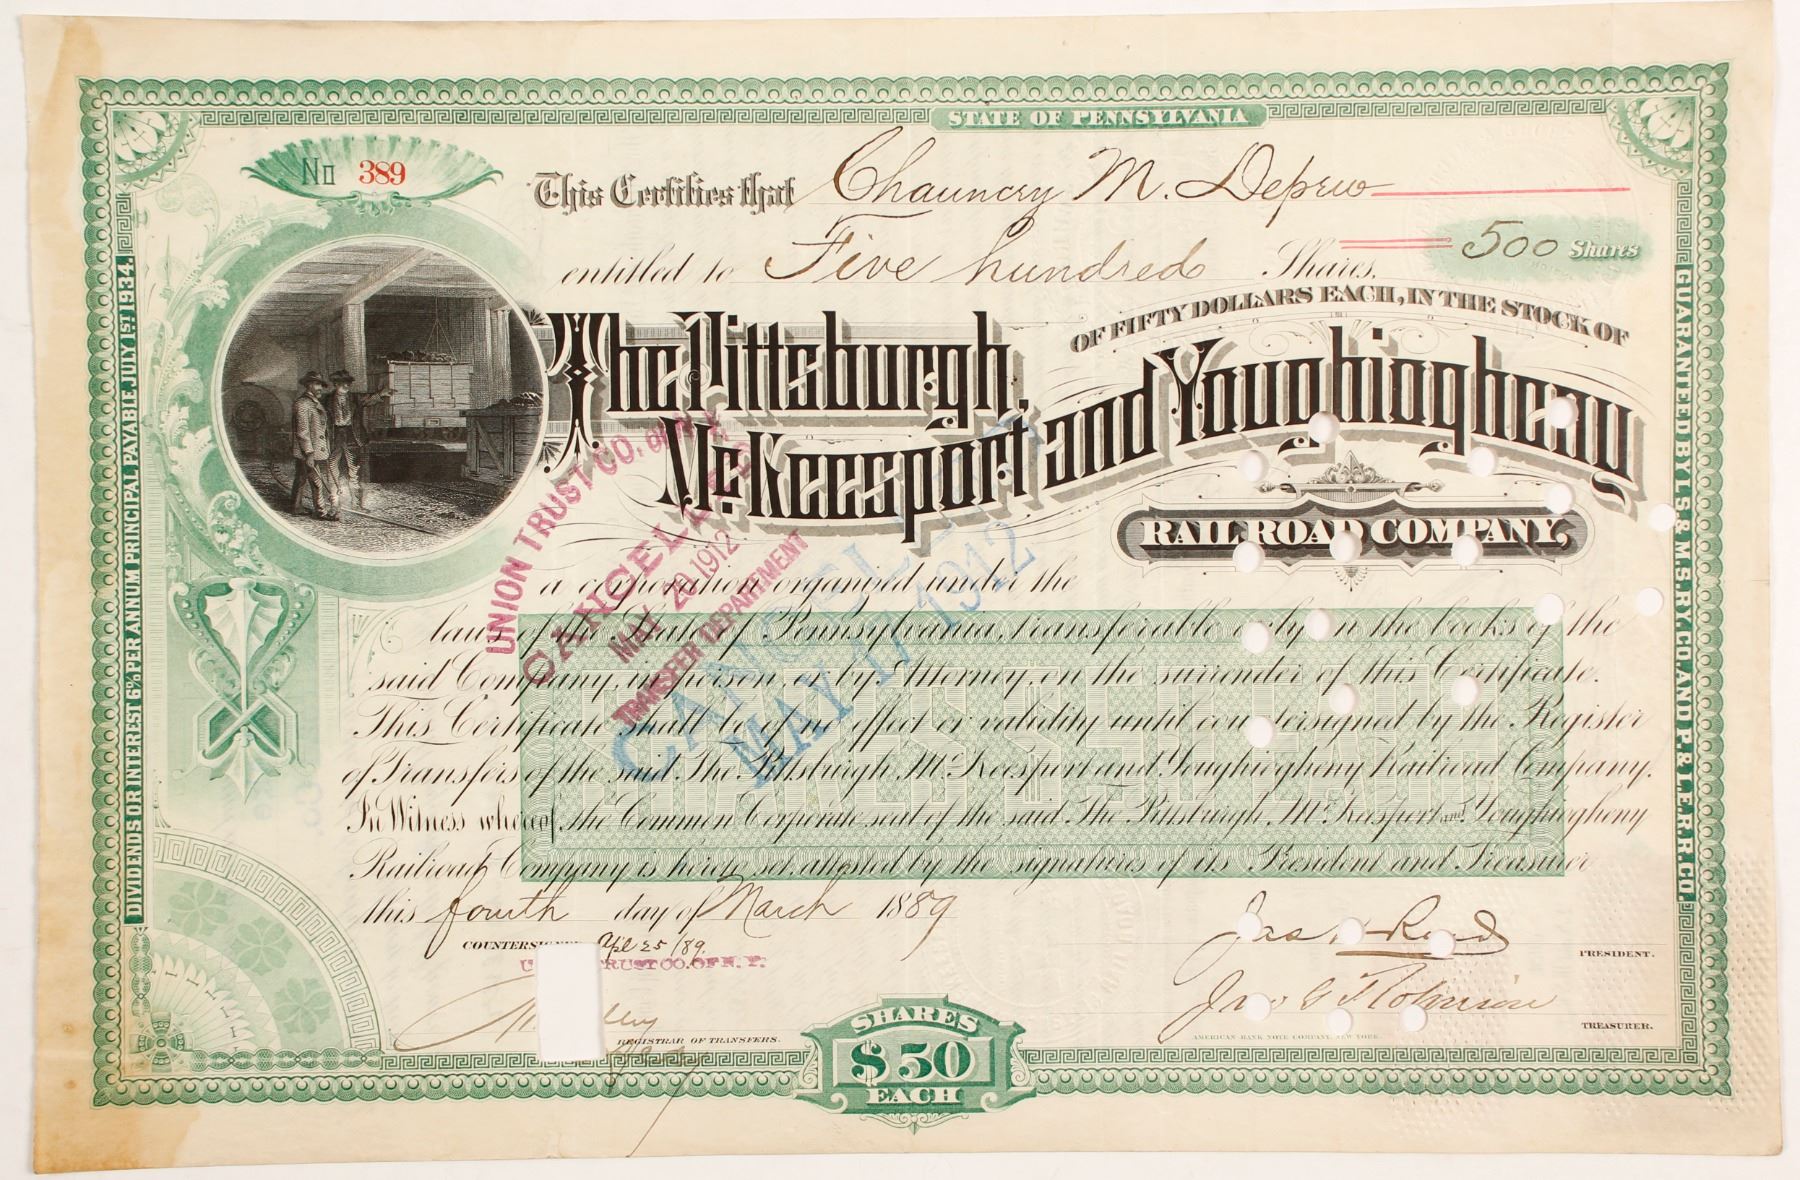 STATE OF PENNSYLVANIA
No 389
This Certifies that Chauncey M. Depew
entitled to Five hundred Shares. 500 Shares
OF FIFTY DOLLARS EACH, IN THE STOCK OF
The Pittsburgh, McKeesport and Youghiogheny
RAILROAD COMPANY,
a corporation organized under the
laws of the State of Pennsylvania, transferable only in the books of the
said Company, in person, or by Attorney, on the surrender of this Certificate.
This Certificate shall be of no effect or validity until countersigned by the Register
of Transfers of the said The Pittsburgh, McKeesport and Youghiogheny Railroad Company.
In Witness whereof, the Common Corporate seal of the said The Pittsburgh, McKeesport and Youghiogheny
Railroad Company is hereto set, attested by the signatures of its President and Treasurer
this fourth day of March 1889
COUNTERSIGNED Apl 25/89
UNION TRUST CO. OF N. Y.
REGISTRAR OF TRANSFERS.
Jas H Reed
PRESIDENT.
Jno G Robinson
TREASURER.
AMERICAN BANK NOTE COMPANY, NEW YORK.
SHARES
$50
EACH
DIVIDENDS OR INTEREST 6% PER ANNUM PRINCIPAL PAYABLE, JULY 1ST 1934.
GUARANTEED BY L.S. & M.S. RY. CO. AND P. & L.E. R.R. CO.
SHARES $50 EACH
UNION TRUST CO. OF N.Y.
CANCELLED
MAY 20 1912
TRANSFER DEPARTMENT
CANCELLED
MAY 17 1912